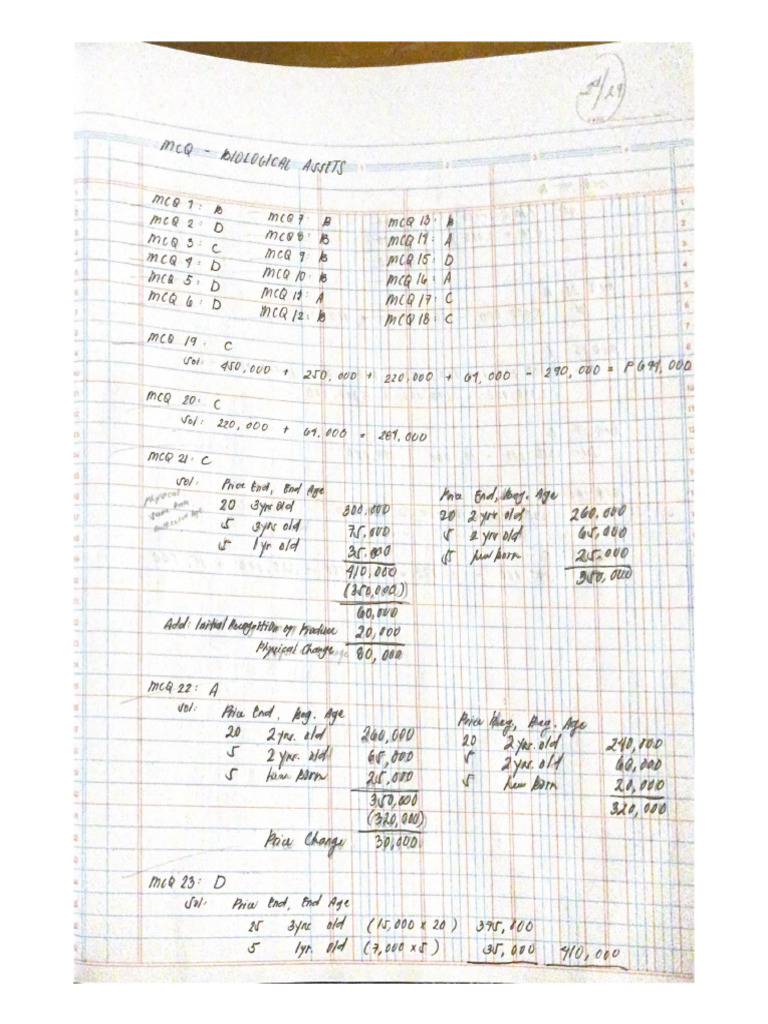 29/29
MCQ - BIOLOGICAL ASSETS
MCQ 1: B MCQ 7: B MCQ 13: B
MCQ 2: D MCQ 8: B MCQ 14: A
MCQ 3: C MCQ 9: B MCQ 15: D
MCQ 4: D MCQ 10: B MCQ 16: A
MCQ 5: D MCQ 11: A MCQ 17: C
MCQ 6: D MCQ 12: B MCQ 18: C
MCQ 19: C
Sol: 450,000 + 250,000 + 220,000 + 64,000 - 290,000 = P694,000
MCQ 20: C
Sol: 220,000 + 64,000 = 284,000
MCQ 21: C
Sol: Price End, End Age Price End, Beg. Age
Physical
20 3yrs old 300,000 20 2 yrs old 260,000
5 3yrs old 75,000 5 2 yrs old 65,000
5 1yr old 35,000 5 New Born 25,000
410,000 350,000
(350,000)
60,000
Add: Initial Recognition of Produce 20,000
Physical Change 80,000
MCQ 22: A
Sol: Price End, Beg. Age Price Beg, Beg. Age
20 2 yrs. old 260,000 20 2 yrs. old 240,000
5 2 yrs. old 65,000 5 2 yrs. old 60,000
5 New Born 25,000 5 New Born 20,000
350,000 320,000
(320,000)
Price Change 30,000
MCQ 23: D
Sol: Price End, End Age
25 3yrs old (15,000 x 20) 375,000
5 1yr. old (7,000 x 5) 35,000 410,000